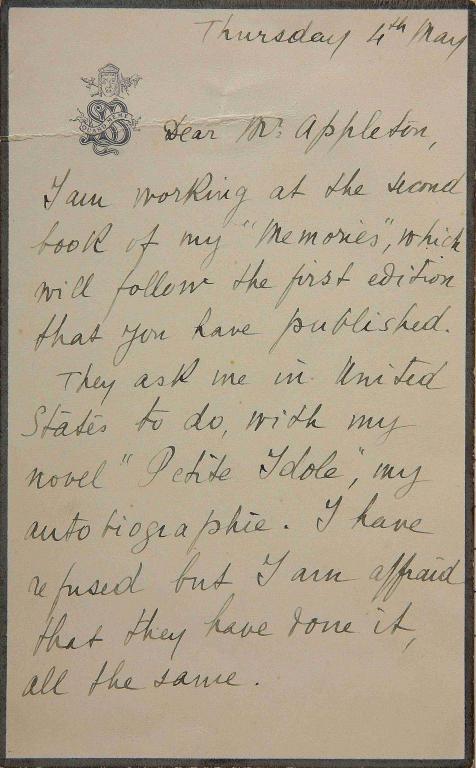 Thursday 4th May
QUAND MEME
SB
Dear Mr. Appleton,
I am working at the second
book of my "Memories", which
will follow the first edition
that you have published.
They ask me in United
States to do, with my
novel "Petite Idole", my
autobiographie. I have
refused but I am affraid
that they have done it,
all the same.